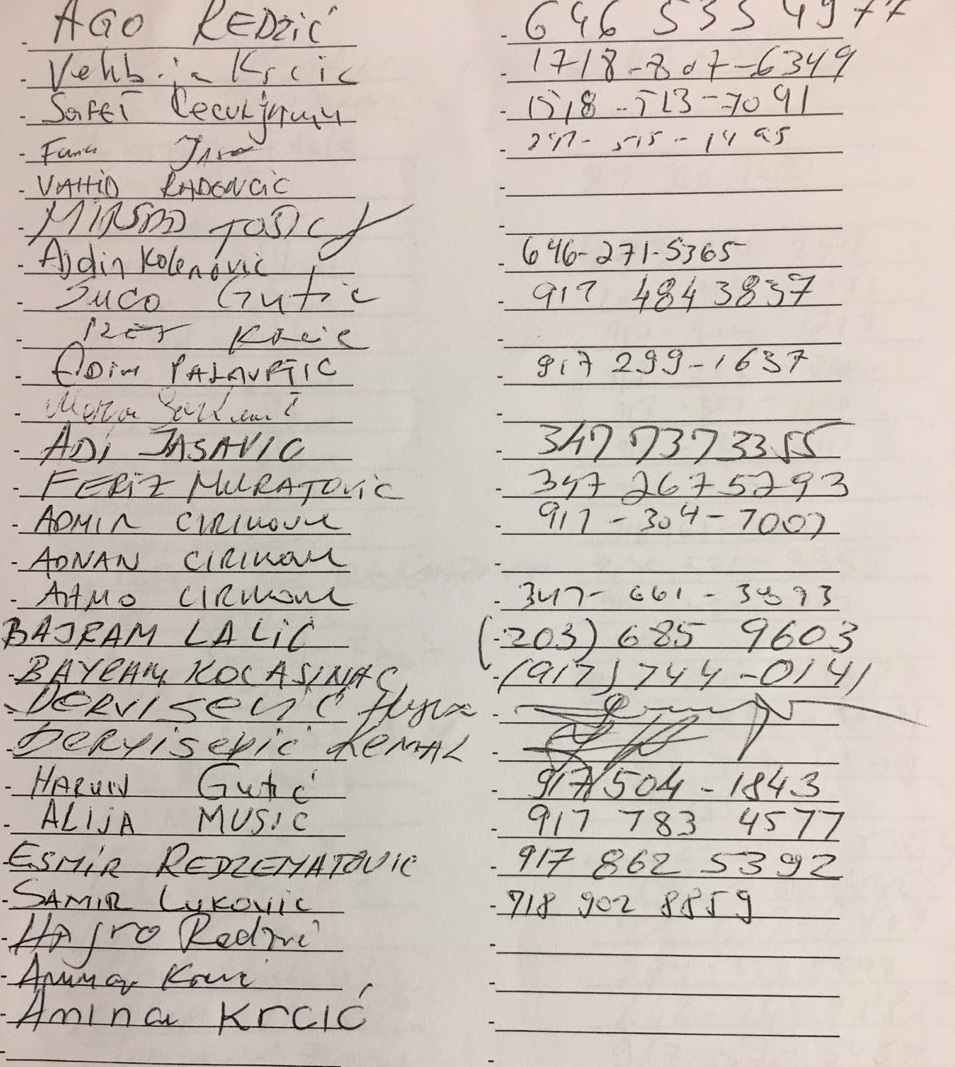 AGO REDZIĆ 646 535 4977
Vehbija Krcic 1718-807-6349
Safet 1518-513-7091
515-1495
VAHID RADONCIC
MIRSAD TOSIC
Ajdin Kolenovic 646-271-5365
Suco Gutic 917 484 3837
IZET Krcic
EDIN PALAVRTIC 917 299-1637
ADI JASAVIC 347 737 3355
FERIZ MURATOVIC 347 267 5293
ADMIR CIRIKOVIC 917-304-7007
ADNAN CIRIKOVIC
AHMO CIRIKOVIC 347-661-3893
BAJRAM LALIĆ (203) 685 9603
BAYRAM KOLASINAC (917) 744-0141
DERVISEVIĆ
Dervisevic KEMAL
HARUN Gutić 917/504-1843
ALIJA MUSIC 917 783 4577
ESMIR REDZEMATOVIC 917 862 5392
SAMIR Lukovic 718 902 8859
HAJRO Redzić
Amina Krcić